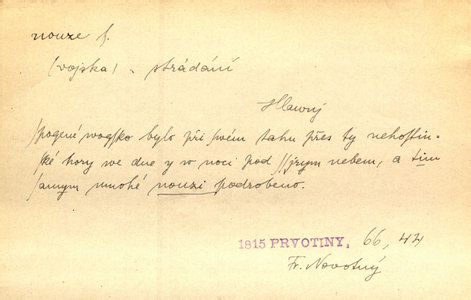 nouze f.
(vojska) - strádání
Hlawný
spogné wogsko bylo při swém tahu přes ty nehostin-
ské hory we dne y w noci pod ssjrym nebem, a tim
samym mnohé nouzi podrobeno.
1815 PRVOTINY, 66, 44
Fr. Novotný